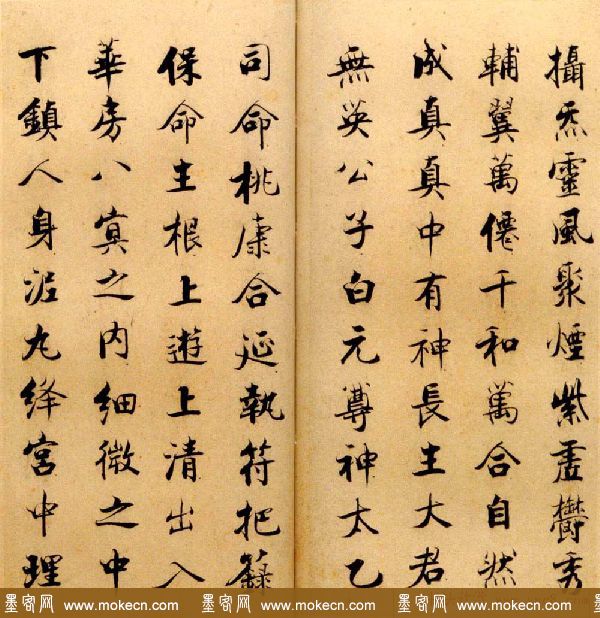 攝炁靈風聚煙紫虛欝秀
輔翼萬僊千和萬合自然
成真真中有神長生大君
無英公子白元尊神太乙
司命桃康合延執符把籙
保命生根上遊上清出入
華房八寘之內細微之中
下鎮人身泥丸絳宮中理
墨客网 www.mokecn.com 墨客网 www.mokecn.com 墨客网 www.mokecn.com